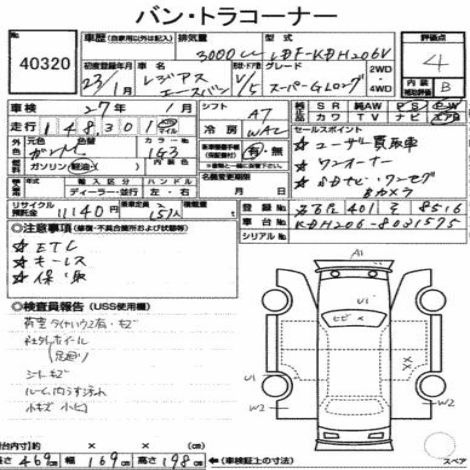 バン・トラコーナー
No. 40320
車歴 (自家用以外は記入) 排気量 3000cc 型式 LDF-KDH206V
評価点 4
初度登録年月 23/1月 車名 レジアスエースバン ドア形状 V/5 グレード スーパーGLロング 2WD・4WD
内装補助評価 B
車検 27年 1月 シフト AT 純正装備品 SR 純AW PS PW
走行 148301 km マイル 冷房 WAC カワ TV ナビ エアB
外色 元色 ガンM 色替 カラーNo. 1G3 有・無 セールスポイント
☆ユーザー買取車
燃料 ガソリン・軽油・( ) ☆ワンオーナー
輸入区分 ディーラー・並行 ハンドル 左・右 名義変更期限 月 日 ☆SDナビ・ワンセグ
Bカメラ
リサイクル預託金 11140円 乗車定員 2(5)人 積載量 登録No. 401 8516
車台No. KDH206-8031575
シリアルNo.
◎注意事項 (修復・不具合箇所および状態等)
☆ETC
☆キーレス
☆保・取
A1
◎検査員報告 (USS使用欄)
荷室タイヤハウス右・キズ
社外ホイール
(足廻り)
シートキズ
ルーム内うす汚れ
小キズ 小凹
U1
ヒビ×
U1
XX
W2
W2
荷台内寸(約) × × (cm)
長さ 469cm 幅 169cm 高さ 198cm ←(車検証上の寸法)
スペア